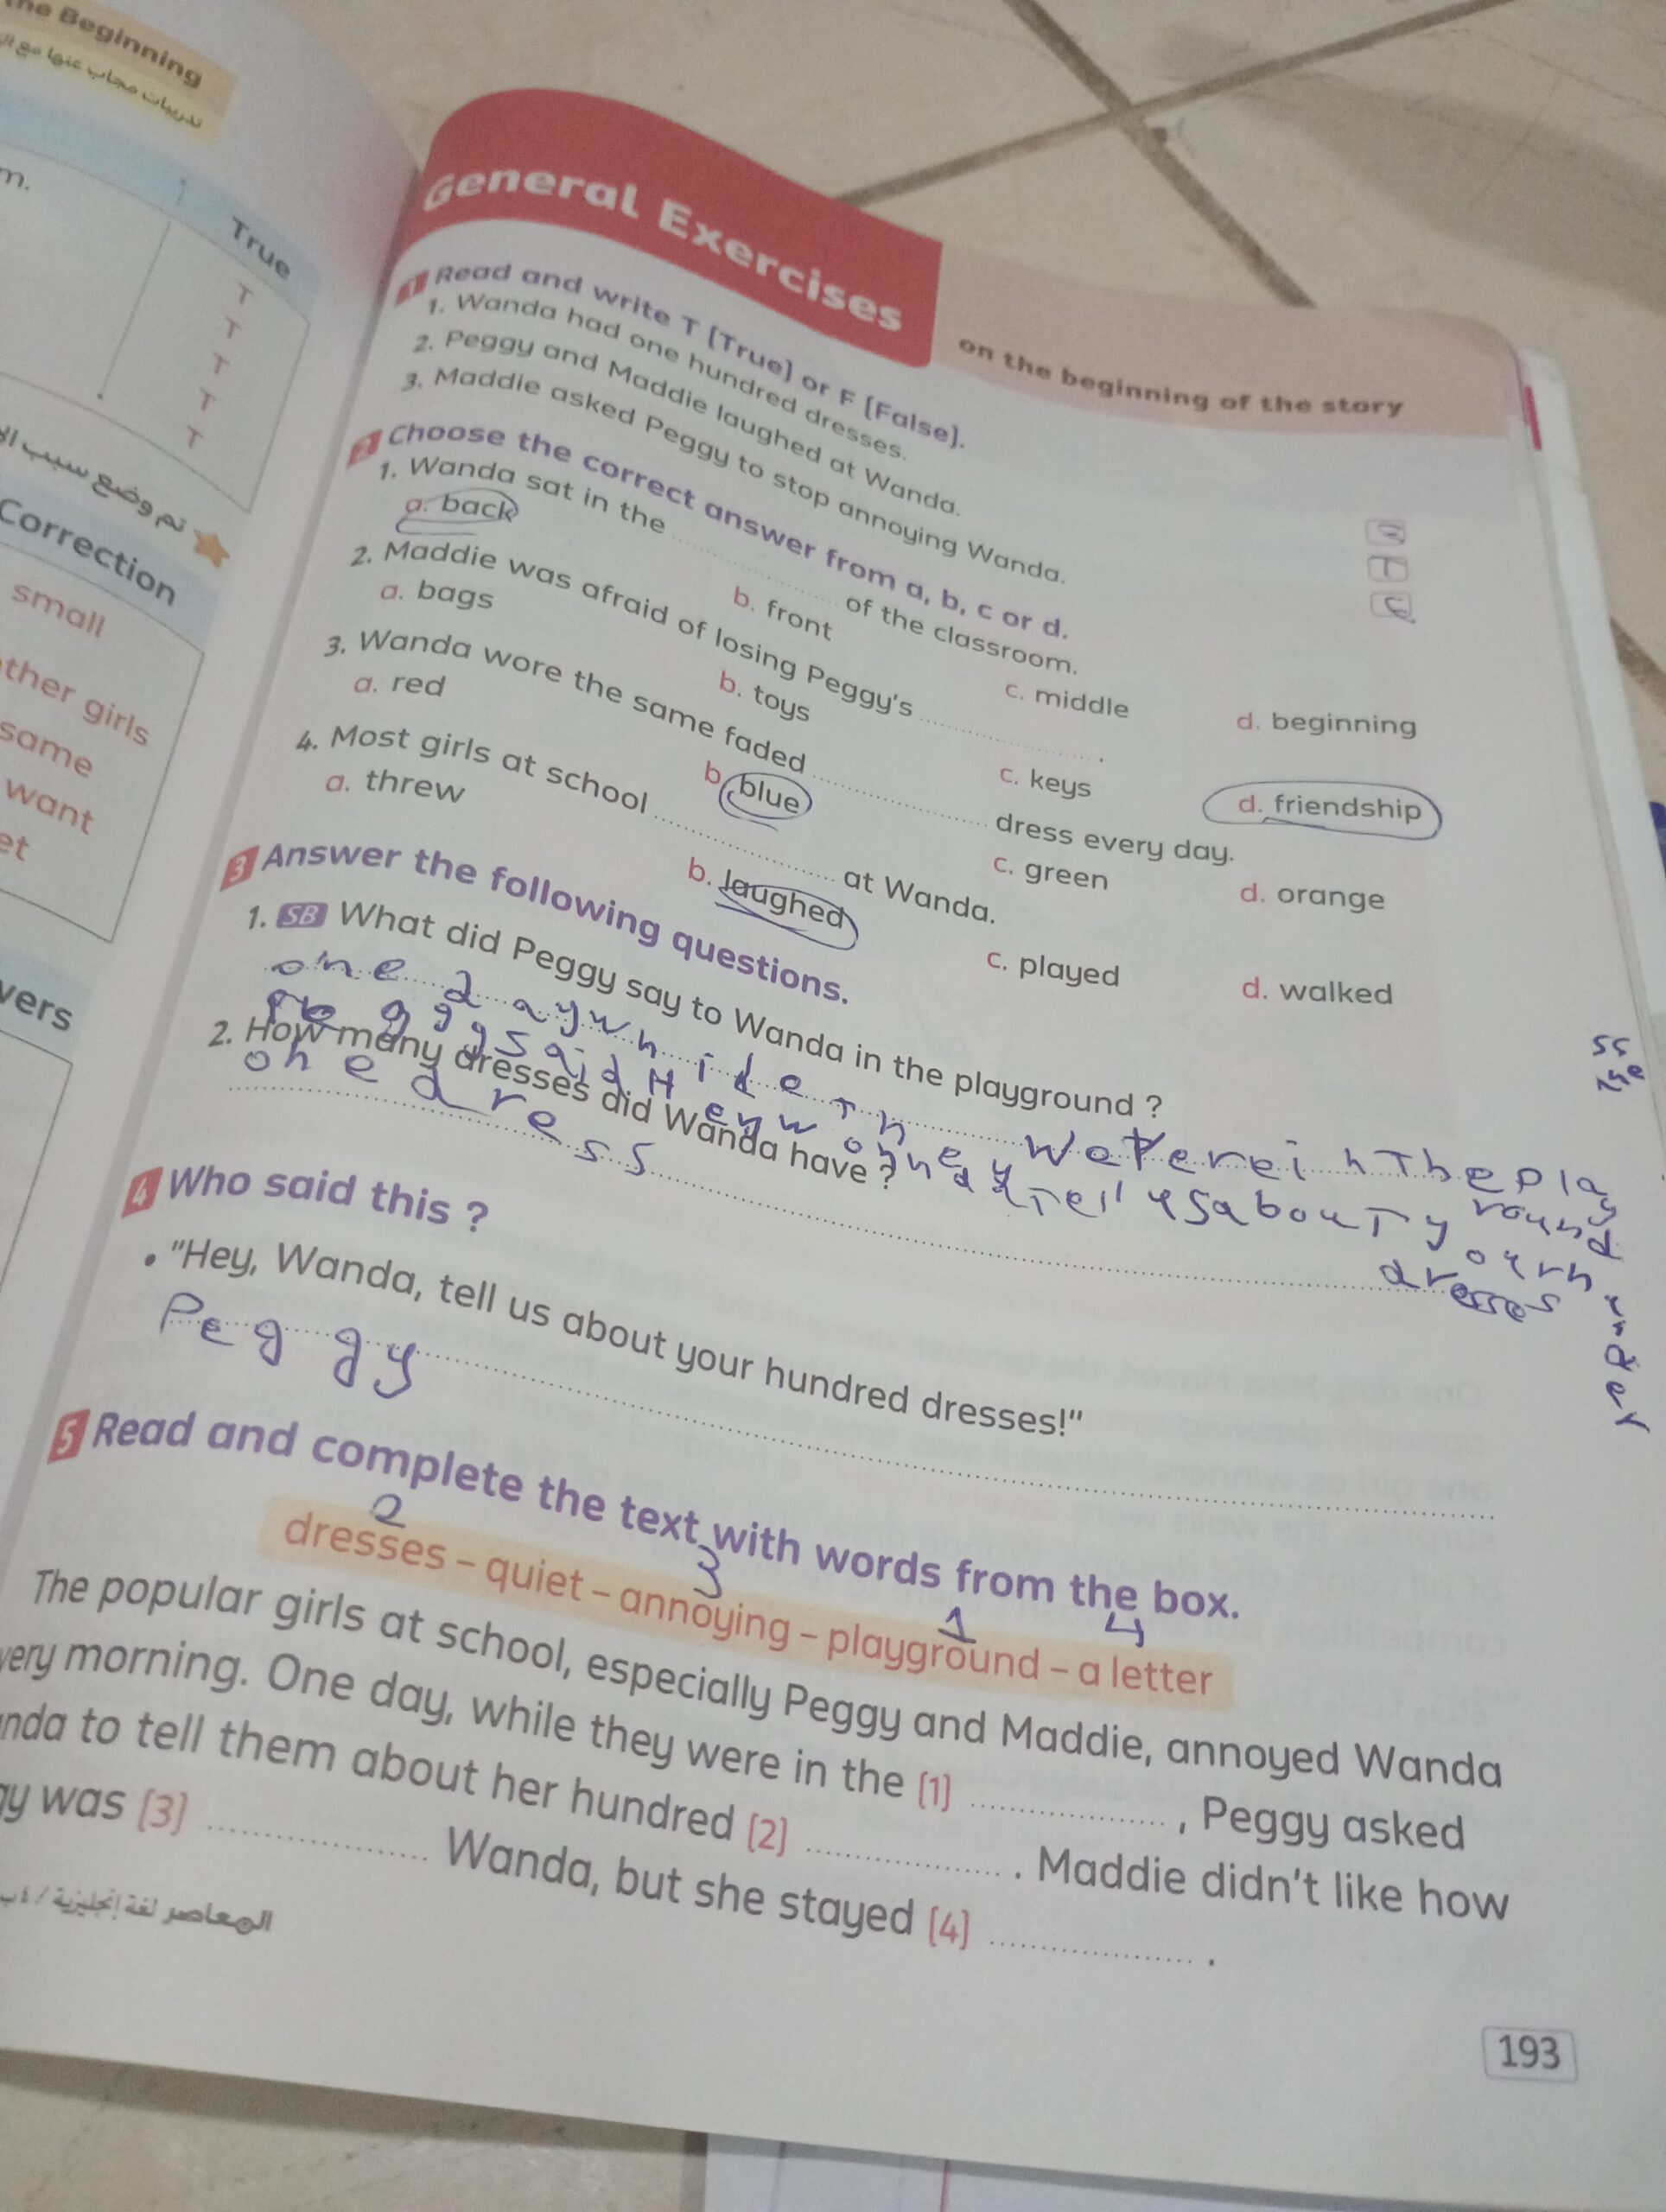 he Beginning
تدريبات مجاب عنها مع ال
m.
True
T
T
T
T
T
تم وضع سبب ال
Correction
small
ther girls
same
want
et
vers
General Exercises
on the beginning of the story
1 Read and write T (True) or F (False).
1. Wanda had one hundred dresses.
2. Peggy and Maddie laughed at Wanda.
T
3. Maddie asked Peggy to stop annoying Wanda.
2 Choose the correct answer from a, b, c or d.
1. Wanda sat in the .................... of the classroom.
a. back b. front c. middle d. beginning
2. Maddie was afraid of losing Peggy's .................... .
a. bags b. toys c. keys d. friendship
3. Wanda wore the same faded .................... dress every day.
a. red b. blue c. green d. orange
4. Most girls at school .................... at Wanda.
a. threw b. laughed c. played d. walked
3 Answer the following questions.
1. SB What did Peggy say to Wanda in the playground ?
one day
said Hey wanda Tell us about your
dresses
2. How many dresses did Wanda have ?
one dress
4 Who said this ?
• "Hey, Wanda, tell us about your hundred dresses!"
Peggy
5 Read and complete the text with words from the box.
2 3 1 4
dresses – quiet – annoying – playground – a letter
The popular girls at school, especially Peggy and Maddie, annoyed Wanda
very morning. One day, while they were in the (1) .................... , Peggy asked
nda to tell them about her hundred (2) .................... . Maddie didn't like how
gy was (3) .................... Wanda, but she stayed (4) .................... .
المعاصر لغة إنجليزية / ٤ب
193